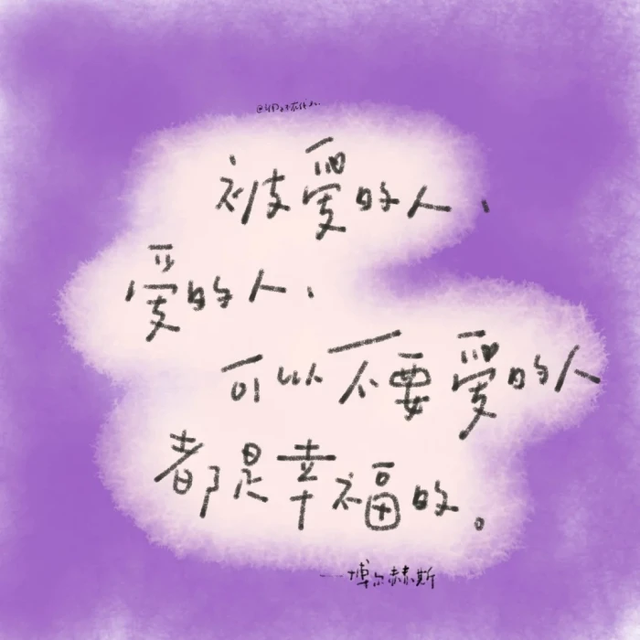 被愛的人、
愛的人、
可以不要愛的人
都是幸福的。
——博尔赫斯